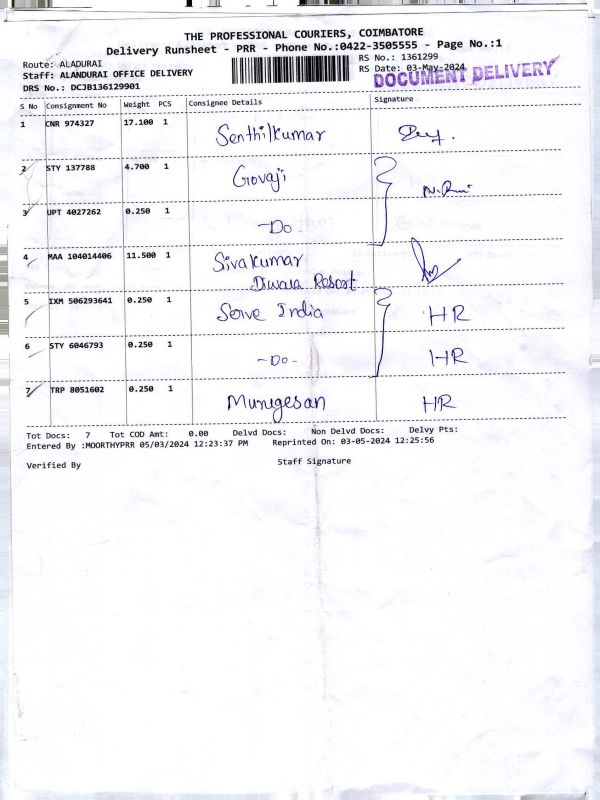 THE PROFESSIONAL COURIERS, COIMBATORE
Delivery Runsheet - PRR - Phone No.:0422-3505555 - Page No.:1
Route: ALADURAI
RS No.: 1361299
Staff: ALANDURAI OFFICE DELIVERY
RS Date: 03-May-2024
DRS No.: DCJB136129901
DOCUMENT DELIVERY
S No Consignment No Weight PCS Consignee Details Signature
1 CNR 974327 17.100 1 Senthilkumar
2 STY 137788 4.700 1 Govaji
3 UPT 4027262 0.250 1 -Do
4 MAA 104014406 11.500 1 Sivakumar
Resort
5 IXM 506293641 0.250 1 Serve India HR
6 STY 6046793 0.250 1 -Do- HR
7 TRP 8051602 0.250 1 Murugesan HR
Tot Docs: 7 Tot COD Amt: 0.00 Delvd Docs: Non Delvd Docs: Delvy Pts:
Entered By :MOORTHYPRR 05/03/2024 12:23:37 PM Reprinted On: 03-05-2024 12:25:56
Verified By Staff Signature